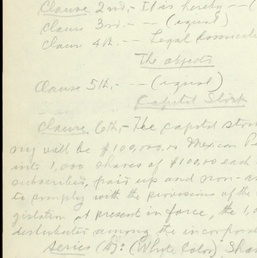 Clause 2nd,- It is hereby -- (
Claus 3rd.- -- (equal)
Claus 4th.- -- Legal
The objects
Clause 5th.- -- (equal)
Capital Stock
Clause 6th,- The capital stock
ny will be $100,000.00 Mexican Pe
into 1,000 shares of $100.00 each
subscribed, paid up and non-as
to comply with the provisions of the
gislation at present in force, the 1,0
distributed among the incorpora
Series (A): (White Color) Shar